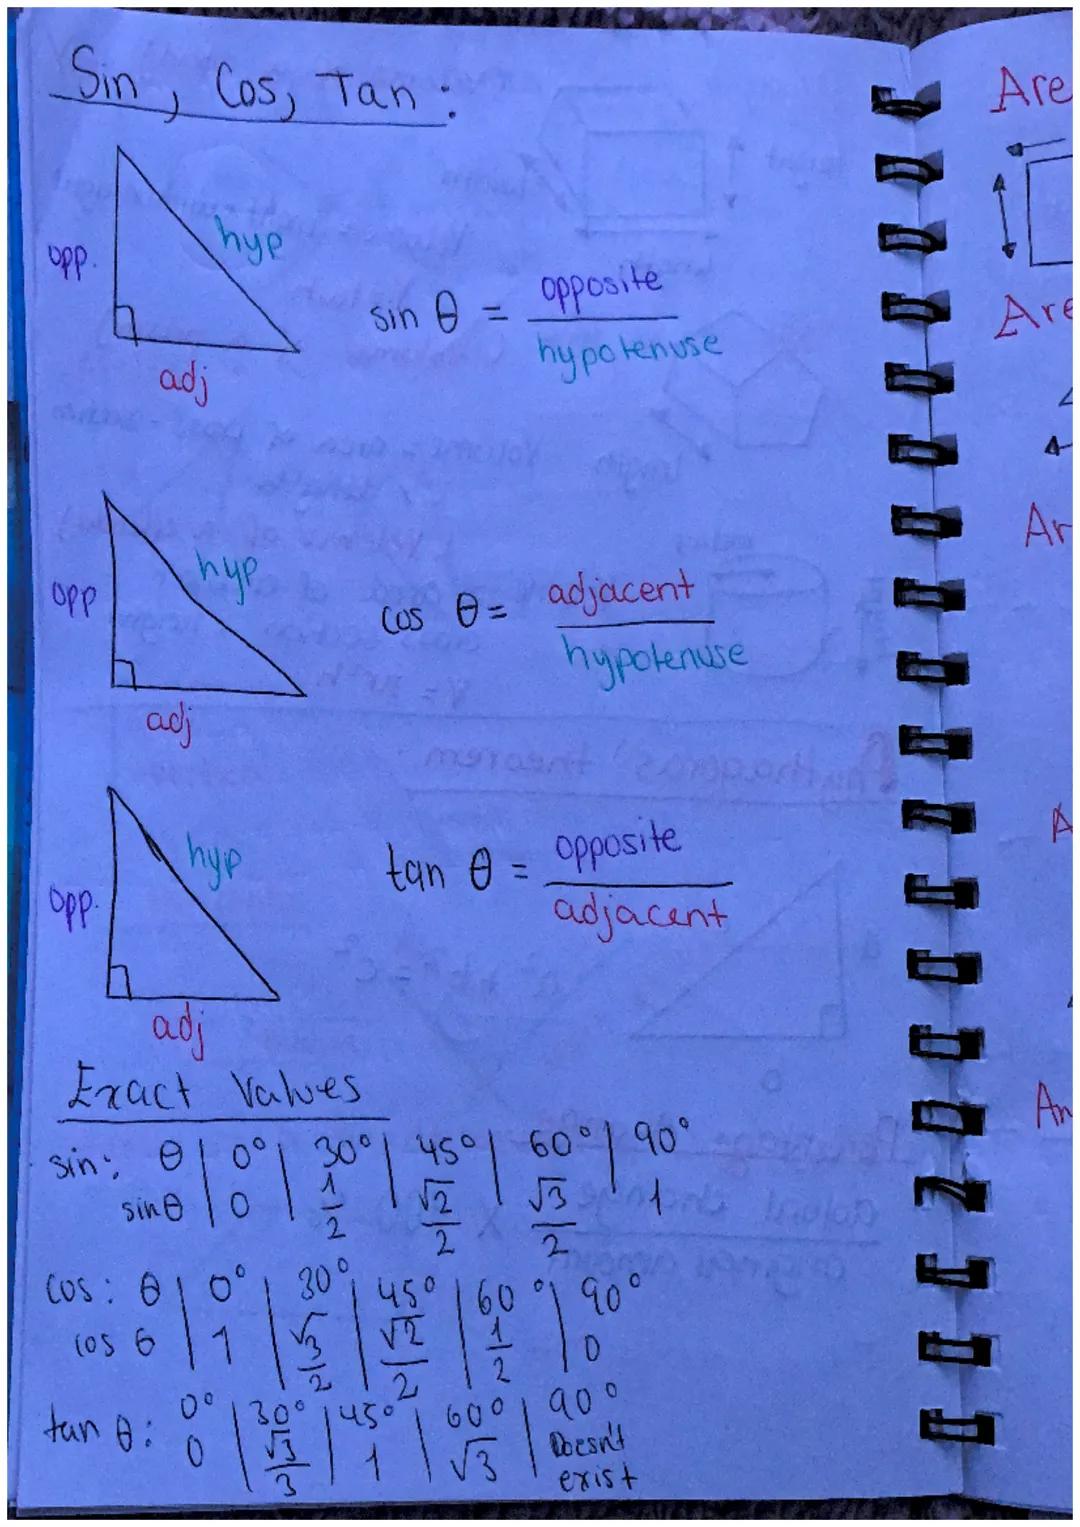 Sin, Cos, Tan:
opp.
hyp
adj
sin θ = opposite
hypotenuse
opp
hyp
adj
cos θ = adjacent
hypotenuse
opp.
hyp
adj
tan θ = opposite
adjacent
Exact Values
sin: θ | 0° | 30° | 45° | 60° | 90°
sinθ | 0 | 1/2 | √2/2 | √3/2 | 1
cos: θ | 0° | 30° | 45° | 60° | 90°
cos θ | 1 | √3/2 | √2/2 | 1/2 | 0
tan θ: 0° | 30° | 45° | 60° | 90°
0 | √3/3 | 1 | √3 | Doesn't
exist
Are
Are
Ar
A
Ar